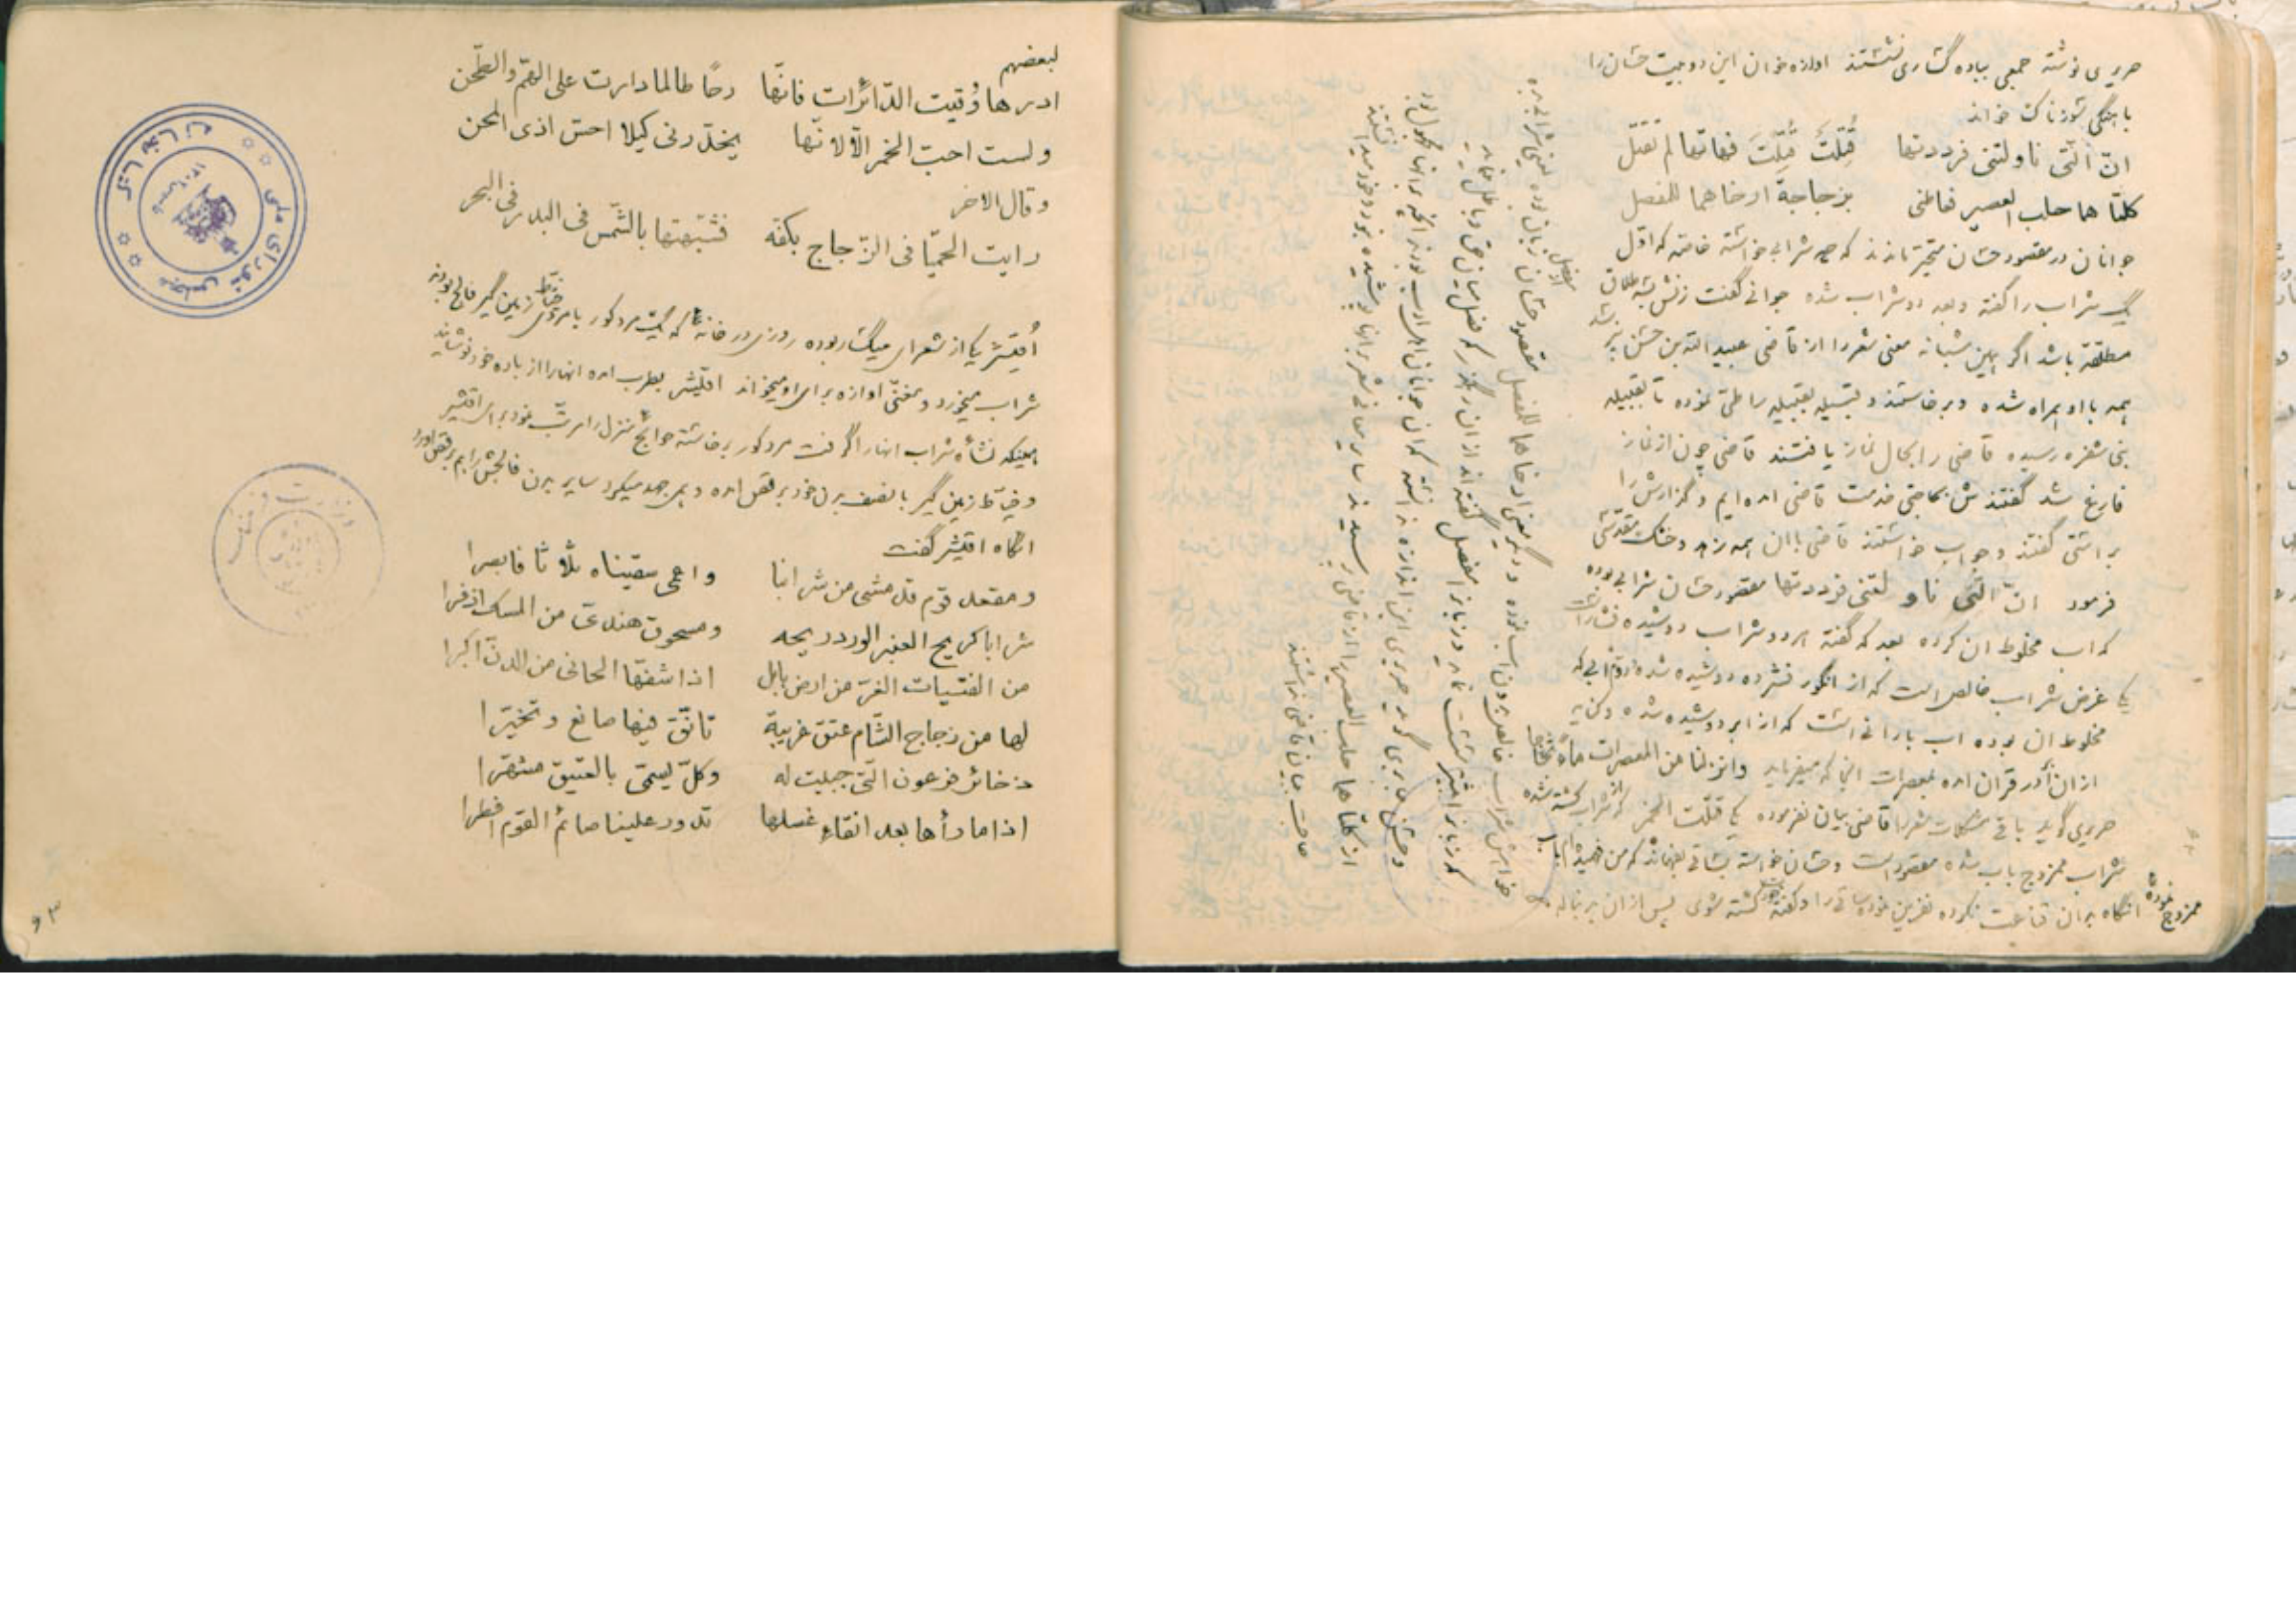 حریری نوشته جمعی بباده گساری نشستند اوازه خوان این دو بیت حسّان را
باهنگی شورناک خواند
انّ الّتی ناولتنی فرددتها قُتِلَتْ قُتِلْتَ فهاتها لم تقتل
کلتا هما حلب العصیر فعاطنی بزجاجة ارخاهما للمفصل
جوانان در مقصود حسّان متحیّر ماندند که چه شرابی خواسته خاصّه که اوّل
یک شراب را گفته و بعد دو شراب شده جوانی گفت زنش بسه طلاق
مطلّقه باشد اگر همین شبانه معنی شعر را از قاضی عبید الله بن حسن نپرسد
همه با او همراه شده و برخاستند و قبیله بقبیله را طیّ نموده تا بقبیله
بنی شقره رسیده قاضی را بحال نماز یافتند قاضی چون از نماز
فارغ شد گفتندش بحاجتی خدمت قاضی امده ایم و گزارش را
براستی گفتند و جواب خواستند قاضی با ان همه زهد و خشک مقدّسی
فرمود انّ الّتی ناولتنی فرددتها مقصود حسّان شرابی بوده
که اب مخلوط ان کرده بعد که گفته هر دو شراب دوشیده فشار است
یکی غرض شراب خالص است که از انگور فشرده دوشیده شده دوّم ابی که
مخلوط ان بوده اب بارانی است که از ابر دوشیده شده و کنایه
از ان در قران امده بمعصرات انجا که میفرماید وانزلنا من المعصرات ماءً ثجّاجا
حریری گوید باقی مشکلات شعر را قاضی بیان نفرموده یکی قتلت الخمر که از شراب کشته شده
شراب ممزوج باب شده مقصود است و حسّان خواسته بساقی بفهماند که من فهمیدم با اب
ممزوج نموده
انگاه بر ان قناعت نکرده نفرین نموده ساقی را و گفته کشته شوی پس از ان پیاله
خواهش شراب خالص بدون اب نموده و دیگر معنی ارخاهما للمفصل مقصود حسّان زبان بوده یعنی شرابی بده
که زبانرا بیشتر سست نماید و زبانرا مفصل گفته اند از ان رهگذر که فصل میان حق و باطل نماید
لبعضهم
ادرها وُقیت الدّائرات فانّها رحًا طالما دارت علی الهمّ والطّحن
ولست احبّ الخمر الّا لانّها یخدّرنی کیلا احسّ اذی المحن
وقال الاخر
رایت الحمیّا فی الزّجاج بکفّه فشبّهتها بالشّمس فی البدر فی البحر
اُقیشر یکی از شعرای میگسار بوده روزی در خانۀ که یکنفر مرد کور با مرد خیّاط زمین گیر فالج بودند
شراب میخورد و مغنّی اوازه برای او میخواند اقیشر بطرب امده انها را از باده خود نوشانید
همینکه نشأه شراب انها را گرفت مرد کور برخاسته حوائج منزل را مرتّب نمود برای اقیشر
و خیّاط زمین گیر با نصف بدن خود برقص امده و بهر جهد میکرد سایر بدن فالجش را هم برقص اورد
انگاه اقیشر گفت
ومقعد قوم قد مشی من شرابنا واعمی سقیناه ثلاثا فابصرا
شرابا کریح العنبر الورد ریحه ومسحوق هندیّ من المسک اذفرا
من الفتیات الغرّ من ارض بابل اذا شفّها الحانی من الدنّ اکبرا
لها من زجاج الشّام عنق غریبة تأنّق فیها صانع وتخیّرا
ذخائر فرعون الّتی جبلیت له وکلّ یسمّی بالعتیق مشهّرا
اذا ما رأها بعد انقاء غسلها تدور علینا صائم القوم افطرا
مجلس شورای ملی
وزارت فرهنگ
۶۳